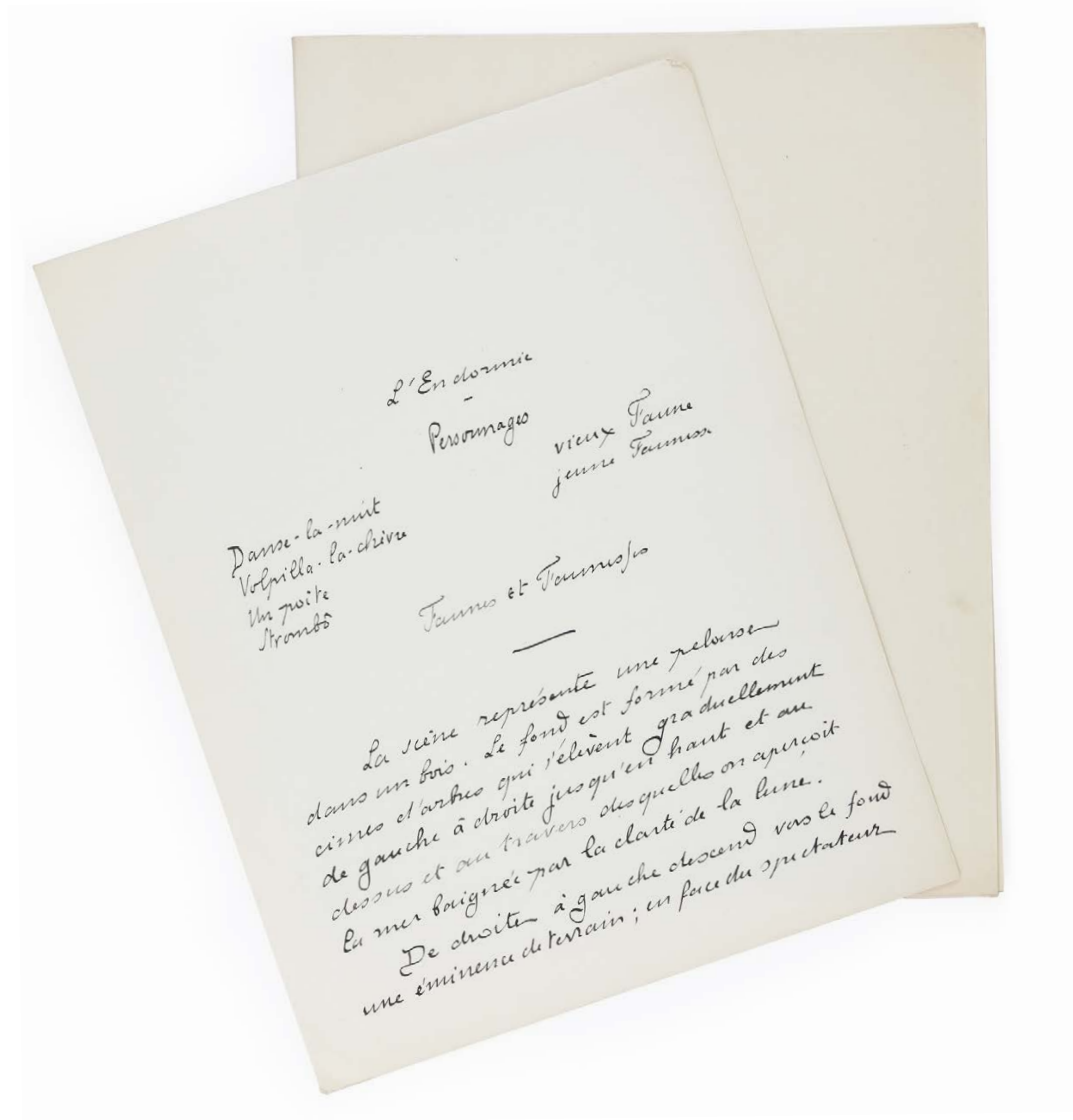 L'Endormie
-
Personnages
Danse-la-nuit
Volpilla-la-chèvre
Un poète
Strombô
vieux Faune
jeune Faunesse
Faunes et Faunesses
La scène représente une pelouse
dans un bois. Le fond est formé par des
cimes d'arbres qui s'élèvent graduellement
de gauche à droite jusqu'en haut et au
dessus et au travers desquelles on aperçoit
la mer baignée par la clarté de la lune.
De droite à gauche descend vers le fond
une éminence de terrain ; en face du spectateur